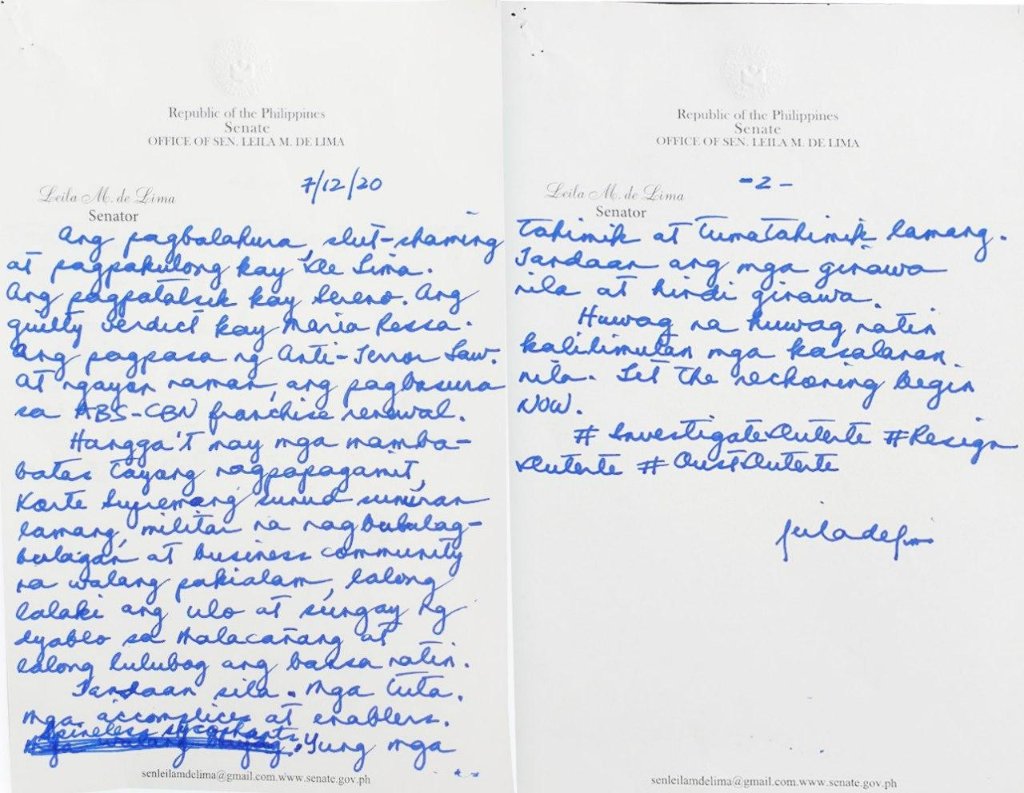 Republic of the Philippines
Senate
OFFICE OF SEN. LEILA M. DE LIMA
Leila M. de Lima
Senator
7/12/20
Ang pagbalahura, slut-shaming
at pagpakulong kay De Lima.
Ang pagpatalsik kay Sereno. Ang
guilty verdict kay Maria Ressa.
Ang pagpasa ng Anti-Terror Law.
At ngayon naman, ang pagbasura
sa ABS-CBN franchise renewal.
Hangga't may mga mamba-
batas tayong nagpapagamit,
Korte Supremang sunud-sunuran
lamang, militar na nagbubulag-
bulagan at business community
na walang pakialam, lalong
lalaki ang ulo at sungay ng
dyablo sa Malacañang at
lalong lulubog ang bansa natin.
Tandaan sila. Mga tuta.
Mga accomplices at enablers.
Spineless sycophants.
Yung mga
senleilamdelima@gmail.com.www.senate.gov.ph
Republic of the Philippines
Senate
OFFICE OF SEN. LEILA M. DE LIMA
Leila M. de Lima
Senator
- 2 -
tahimik at tumatahimik lamang.
Tandaan ang mga ginawa
nila at hindi ginawa.
Huwag na huwag natin
kalilimutan mga kasalanan
nila. Let the reckoning begin
NOW.
#InvestigateDuterte #Resign
Duterte #OustDuterte
senleilamdelima@gmail.com.www.senate.gov.ph